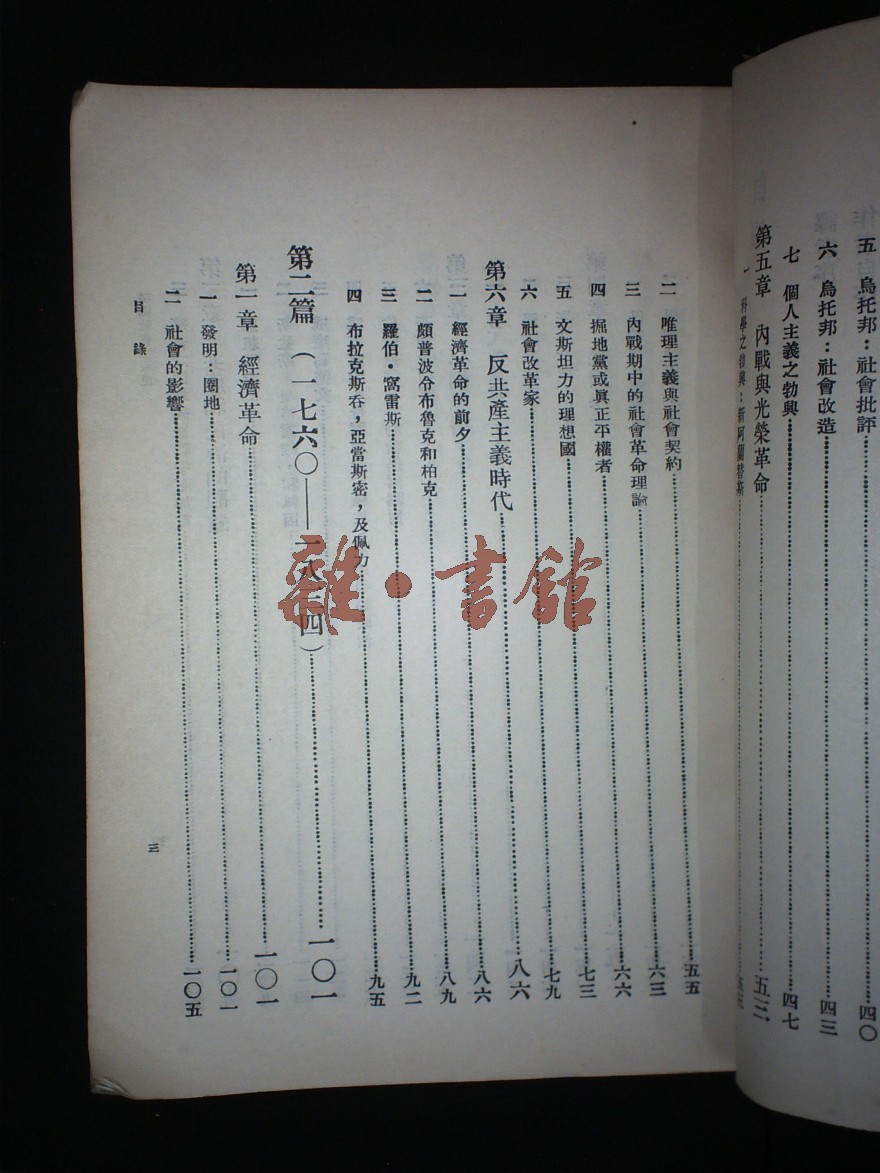 五　烏托邦：社會批評……四〇
六　烏托邦：社會改造……四三
七　個人主義之勃興……四七
第五章　內戰與光榮革命……五三
一　科學之勃興：新阿蘭替斯……五三
二　唯理主義與社會契約……五五
三　內戰期中的社會革命理論……六三
四　掘地黨或眞正平權者……六六
五　文斯坦力的理想國……七三
六　社會改革家……七九
第六章　反共產主義時代……八六
一　經濟革命的前夕……八六
二　頗普波令布魯克和柏克……八九
三　羅伯・窩雷斯……九二
四　布拉克斯吞，亞當斯密，及佩力……九五
第二篇（一七六〇——一八三四）……一〇一
第一章　經濟革命……一〇一
一　發明：圈地……一〇一
二　社會的影響……一〇五
目錄
三
雜・書館